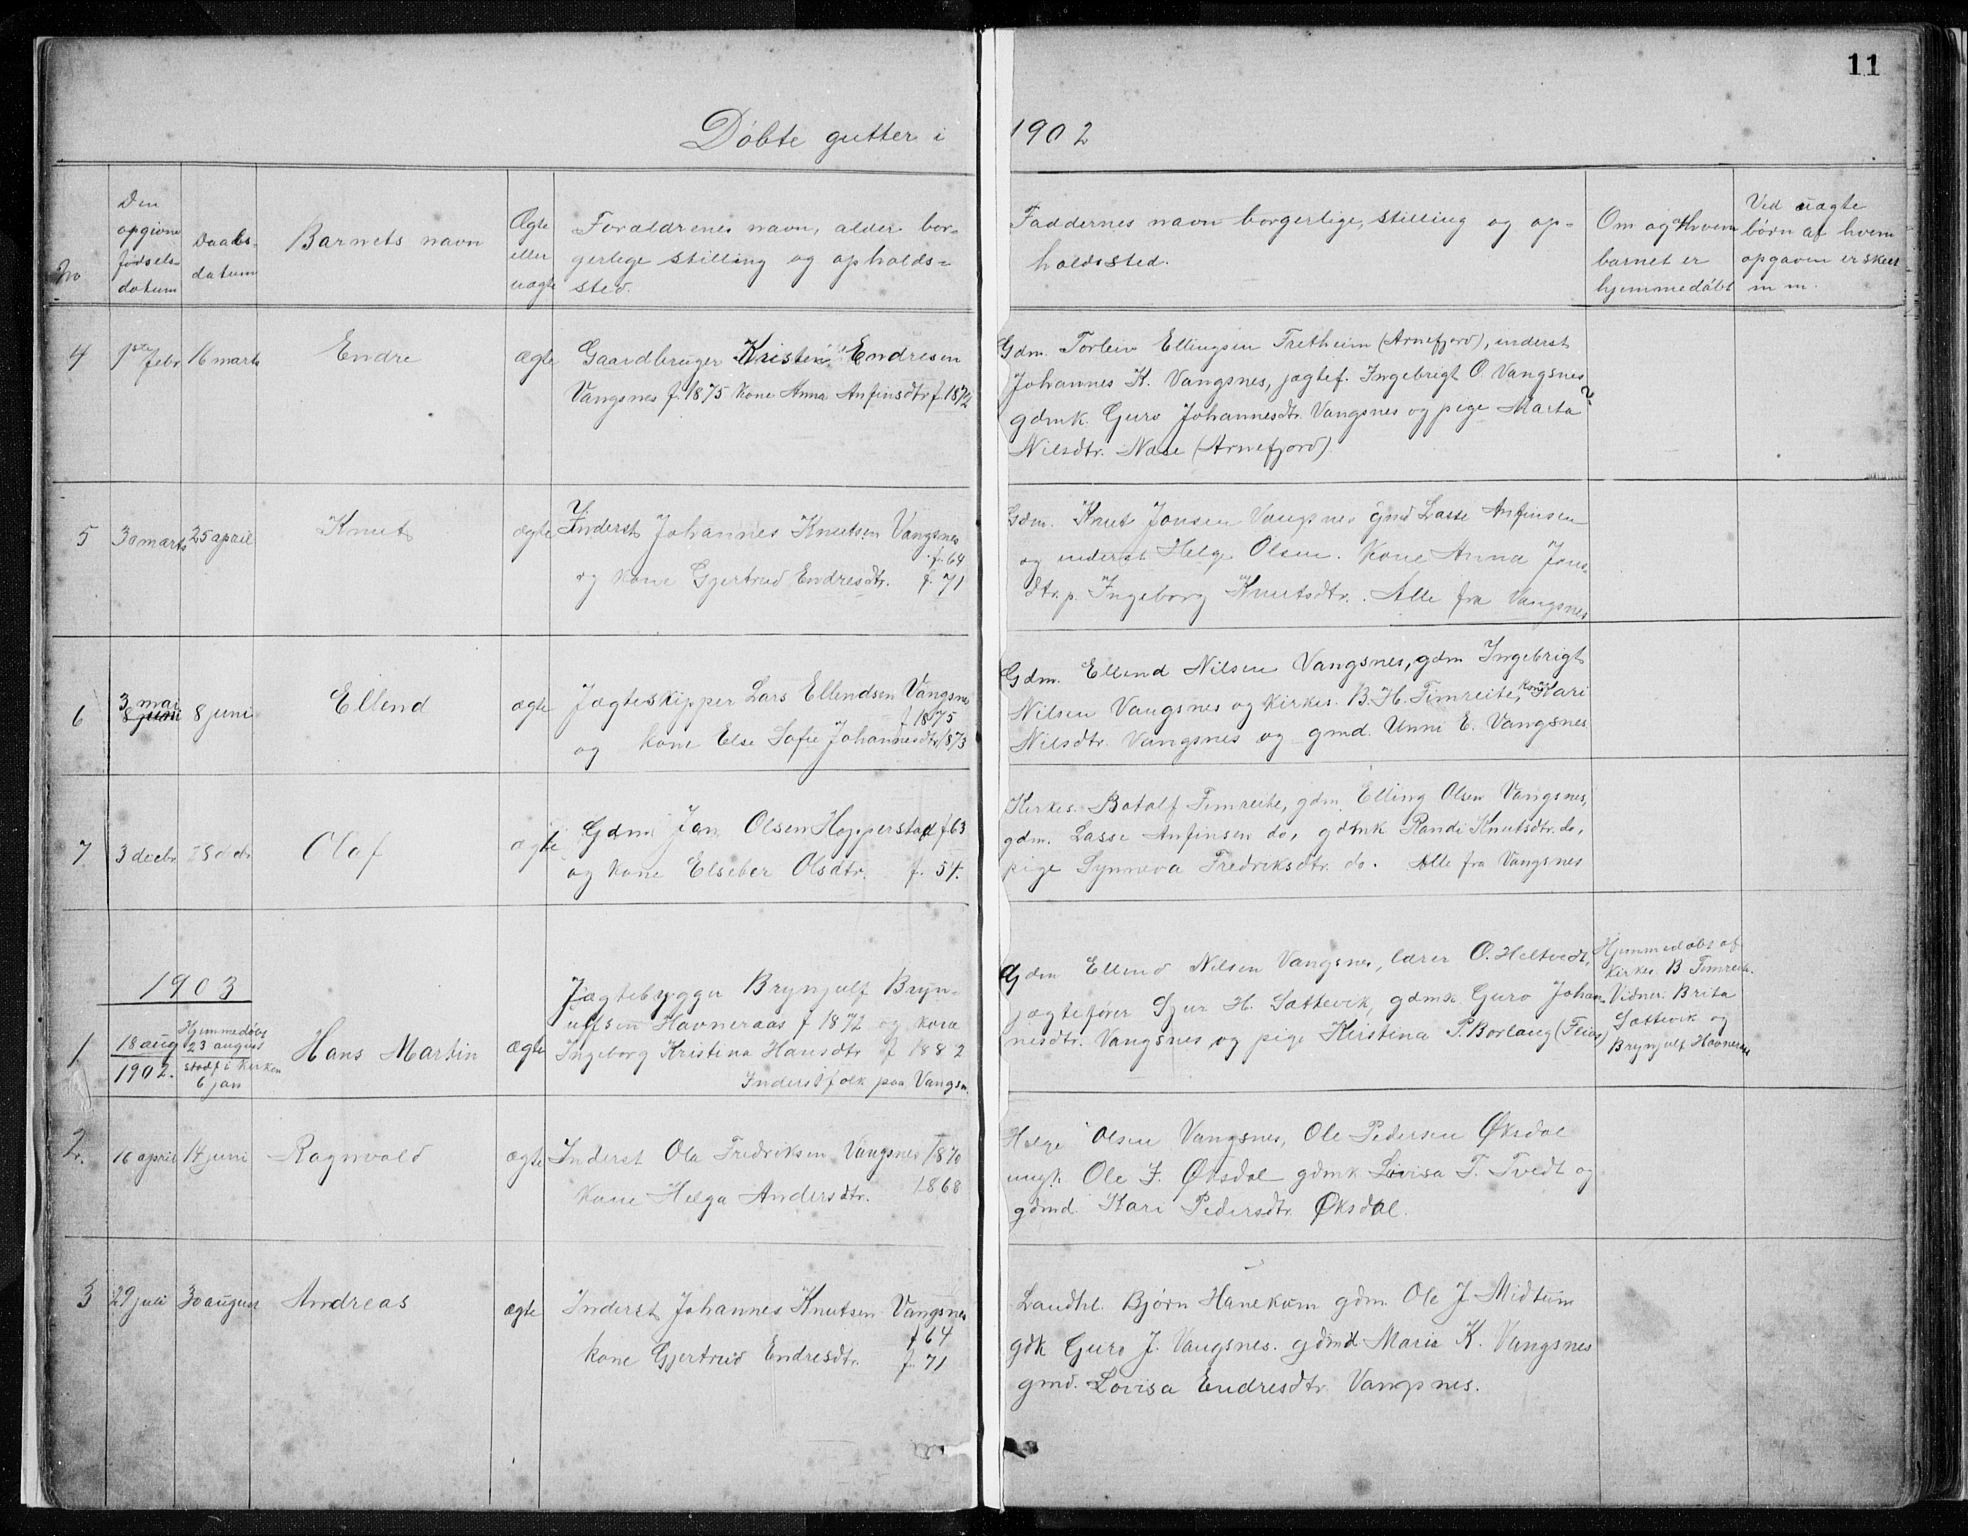 11
Døbte gutter i 1902
No
Den opgivne fødsels-datum
Daabs-datum
Barnets navn
Ægte eller uægte
Forældrenes navn, alder bor-
gerlige stilling og opholds-
sted.
Faddernes navn borgerlige, stilling og op-
holdssted.
Om og af hvem
barnet er
hjemmedøbt
Ved uægte
børn af hvem
opgaven er skeet
m m.
4 1ste febr 16 marts Endre ægte
Gaardbruger Kristen Endresen
Vangsnes f. 1875 kone Anna Anfinsdtr f. 1872
Gdm. Torleiv Ellingsen Fretheim (Arnefjord), inderst
Johannes K. Vangsnes, jægtef. Ingebrigt O. Vangsnes
gdmk. Guro Johannesdtr. Vangsnes og pige Marta
Nilsdtr. Nase (Arnefjord)
5 30 marts 25 april Knut ægte
Inderst Johannes Knutsen Vangsnes
f. 64
og kone Gjertrud Endresdtr. f. 71
Gdm. Knut Jonsen Vangsnes gmd Lasse Anfinsen
og inderst Helge Olsen. Kone Anna Jons-
dtr. p. Ingeborg Knutsdtr. Alle fra Vangsnes
6 3 mai 8 juni 8 juni Ellend ægte
Jægteskipper Lars Ellendsen Vangsnes
f 1875
og kone Else Sofie Johannesdtr 1873
Gdm. Ellend Nilsen Vangsnes, gdm Ingebrigt
Nilsen Vangsnes og kirkes. B. H. Fimreite, kone Kari
Nilsdtr. Vangsnes og gmd. Unni E. Vangsnes
7 3 decbr. 28 dcbr Olaf ægte
Gdm Jon Olsen Hopperstad f 63
og kone Elseber Olsdtr. f. 54.
Kirkes. Botolf Fimreite, gdm. Elling Olsen Vangsnes,
gdm. Lasse Anfinsen do, gdmk Randi Knutsdtr. do,
pige Synneva Fredriksdtr. do. Alle fra Vangsnes
1903
1 18 aug 1902. Hjemmedøbt
23 august
stadf. i kirken
6 jan
Hans Martin ægte
Jægtebygger Brynjulf Bryn-
ulfsen Havneraas f 1872 og kone
Ingeborg Kristina Hansdtr f 1882
Inderstfolk paa Vangsn.
Gdm Ellend Nilsen Vangsnes, lærer O. Heltvedt,
jægtefører Sjur H. Sættevik, gdmk Guro Johan-
nesdtr. Vangsnes og pige Kristina P. Borlaug (Feios)
Hjemmedøbt af
kirkes. B Fimreite.
Vidner. Brita
Sættevik og
Brynjulf Havneraas
2. 16 april 14 juni Ragnvald ægte
Inderst Ola Fredriksen Vangsnes 1870
kone Helga Andersdtr. 1868
Helge Olsen Vangsnes, Ole Pedersen Øksdal
ungk. Ole F. Øksdal gdmk Lovisa T. Tvedt og
gdmd. Kari Pedersdtr. Øksdal.
3 29 juli 30 august Andreas ægte
Inderst Johannes Knutsen Vangsnes
f 64
kone Gjertrud Endresdtr. f. 71
Landhl. Bjørn Hanekam gdm. Ole J. Midtun
gdk Guro J. Vangsnes. gdmd Maria K. Vangsnes
gmd. Lovisa Endresdtr. Vangsnes.